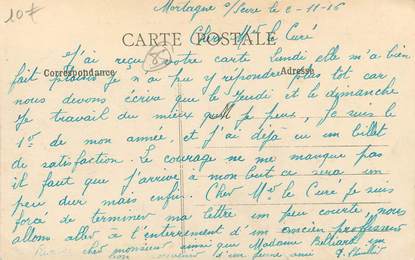 107
Mortagne s/ Sèvre le 2-11-16
CARTE POSTALE
Cher Mr le Curé
J'ai reçu votre carte lundi elle m'a bien
Correspondance
Adresse
fait plaisir je n'ai pu y répondre plus tot car
nous devons écrire que le Jeudi et le dimanche
Je travail du mieux que je peux, Je suis le
1er de mon année et j'ai déjà eu un billet
de satisfaction. Le courage ne me manque pas
il faut que j'arrive à mon but ce sera un
peu dur mais enfin. Cher Mr le Curé Je suis
forcé de terminer ma lettre un peu courte, nous
allons aller à l'enterrement d'un ancien professeur
cher monsieur ainsi que Madame Belliard un
bon souvenir d'un jeune ami